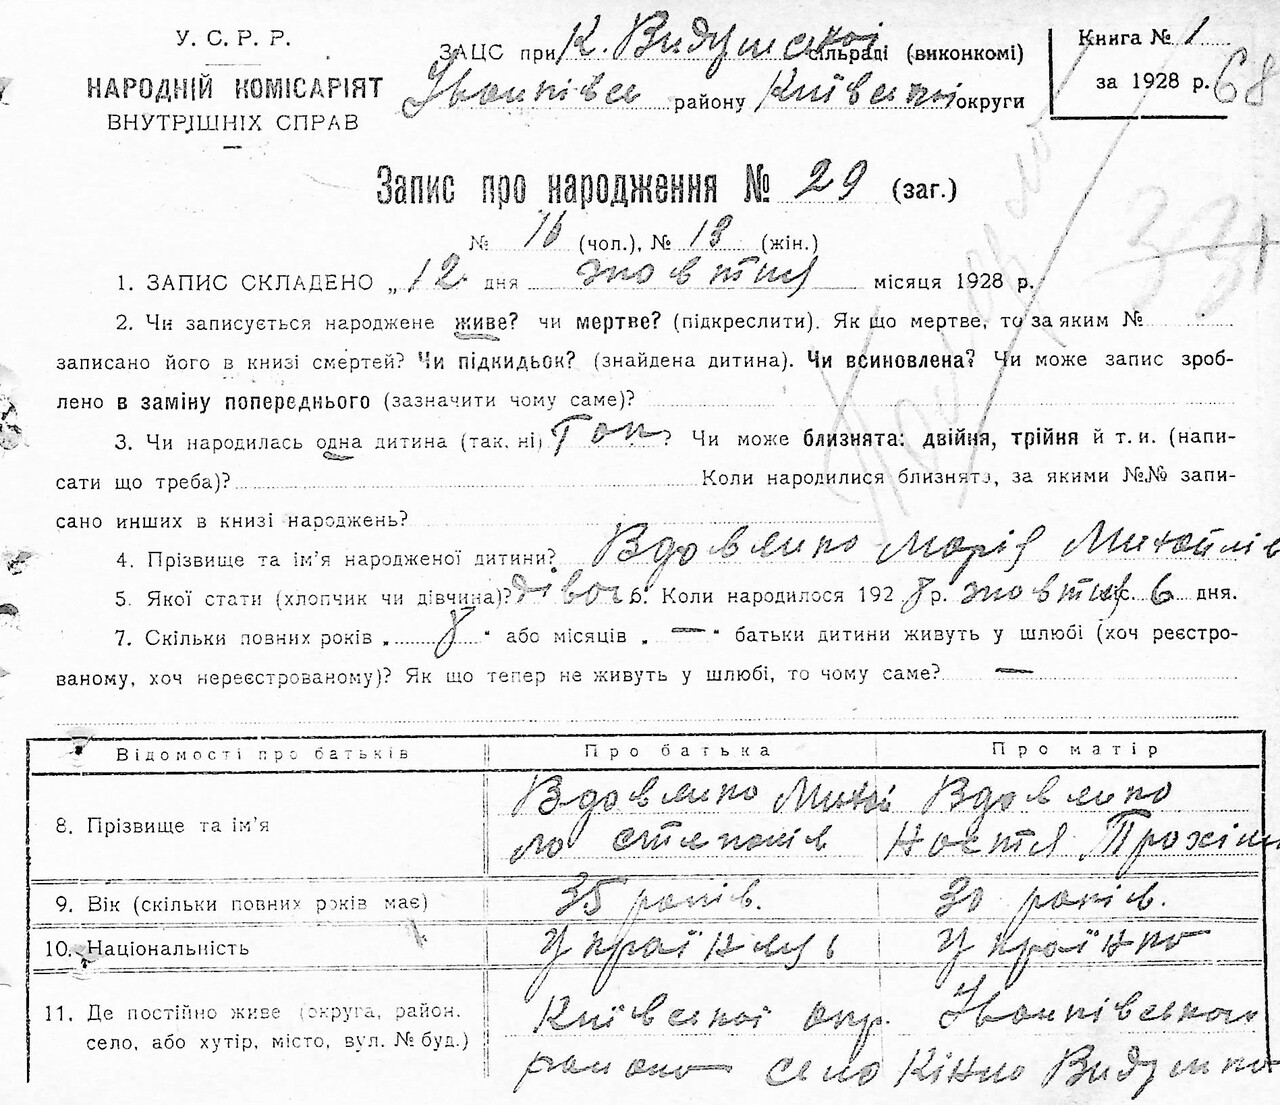 У. С. Р. Р.
НАРОДНІЙ КОМІСАРІЯТ
ВНУТРІШНІХ СПРАВ
ЗАЦС при К. Видумской сільраді (виконкомі)
Іванківсь району Київської округи
Книга № 1
за 1928 р. 68
Запис про народження № 29 (заг.)
№ 16 (чол.), № 13 (жін.)
1. ЗАПИС СКЛАДЕНО „ 12 дня жовтня місяця 1928 р.
2. Чи записується народжене живе? чи мертве? (підкреслити). Як що мертве, то за яким №
записано його в книзі смертей? Чи підкидьок? (знайдена дитина). Чи всиновлена? Чи може запис зроб-
лено в заміну попереднього (зазначити чому саме)?
3. Чи народилась одна дитина (так, ні) Так ? Чи може близнята: двійня, трійня й т. и. (напи-
сати що треба)? Коли народилися близнята, за якими №№ запи-
сано инших в книзі народжень?
4. Прізвище та ім'я народженої дитини? Вдовенко Марія Михайлів
5. Якої стати (хлопчик чи дівчина)? дівоч 6. Коли народилося 1928 р. жовтня 6 дня.
7. Скільки повних років „ 8 " або місяців „ — " батьки дитини живуть у шлюбі (хоч реєстро-
ваному, хоч нереєстрованому)? Як що тепер не живуть у шлюбі, то чому саме? —
Відомості про батьків Про батька Про матір
8. Прізвище та ім'я Вдовенко Михай Вдовенко
ло Степанів Настя Трохим
9. Вік (скільки повних років має) 35 років. 30 років.
10. Національність Українець Українка
11. Де постійно живе (округа, район, Київської окр. Іванківського
село, або хутір, місто, вул. № буд.) району село Кінно Видумка